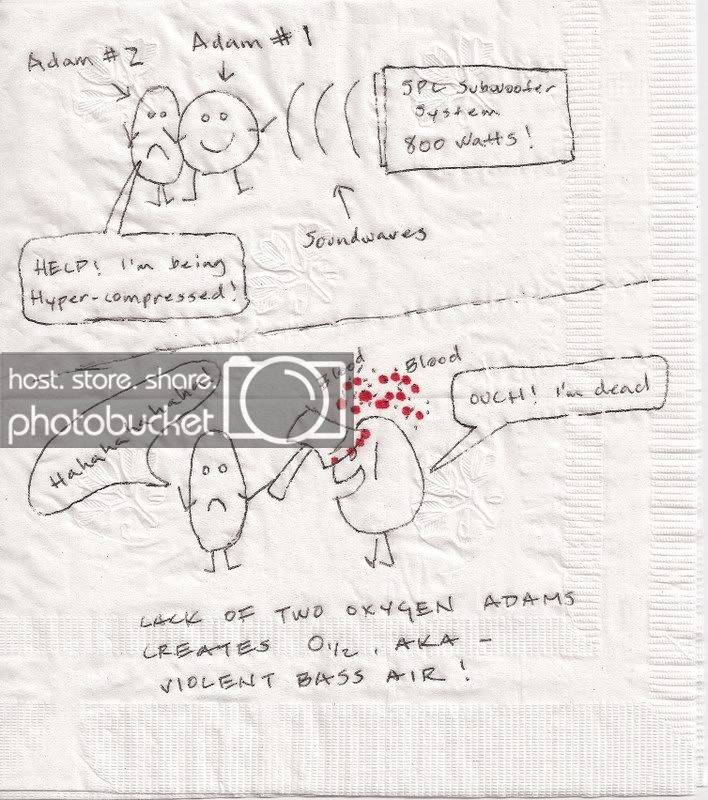 Adam # 2
Adam # 1
SPL Subwoofer
System
800 Watts!
Soundwaves
HELP! I'm being
Hyper-compressed!
host. store. share.
photobucket
Blood
Blood
OUCH! I'm dead
LACK OF TWO OXYGEN ADAMS
CREATES O1/2, AKA -
VIOLENT BASS AIR!